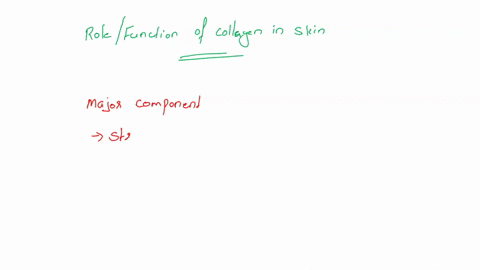 Role/Function of collagen in skin
Major component
→ Str